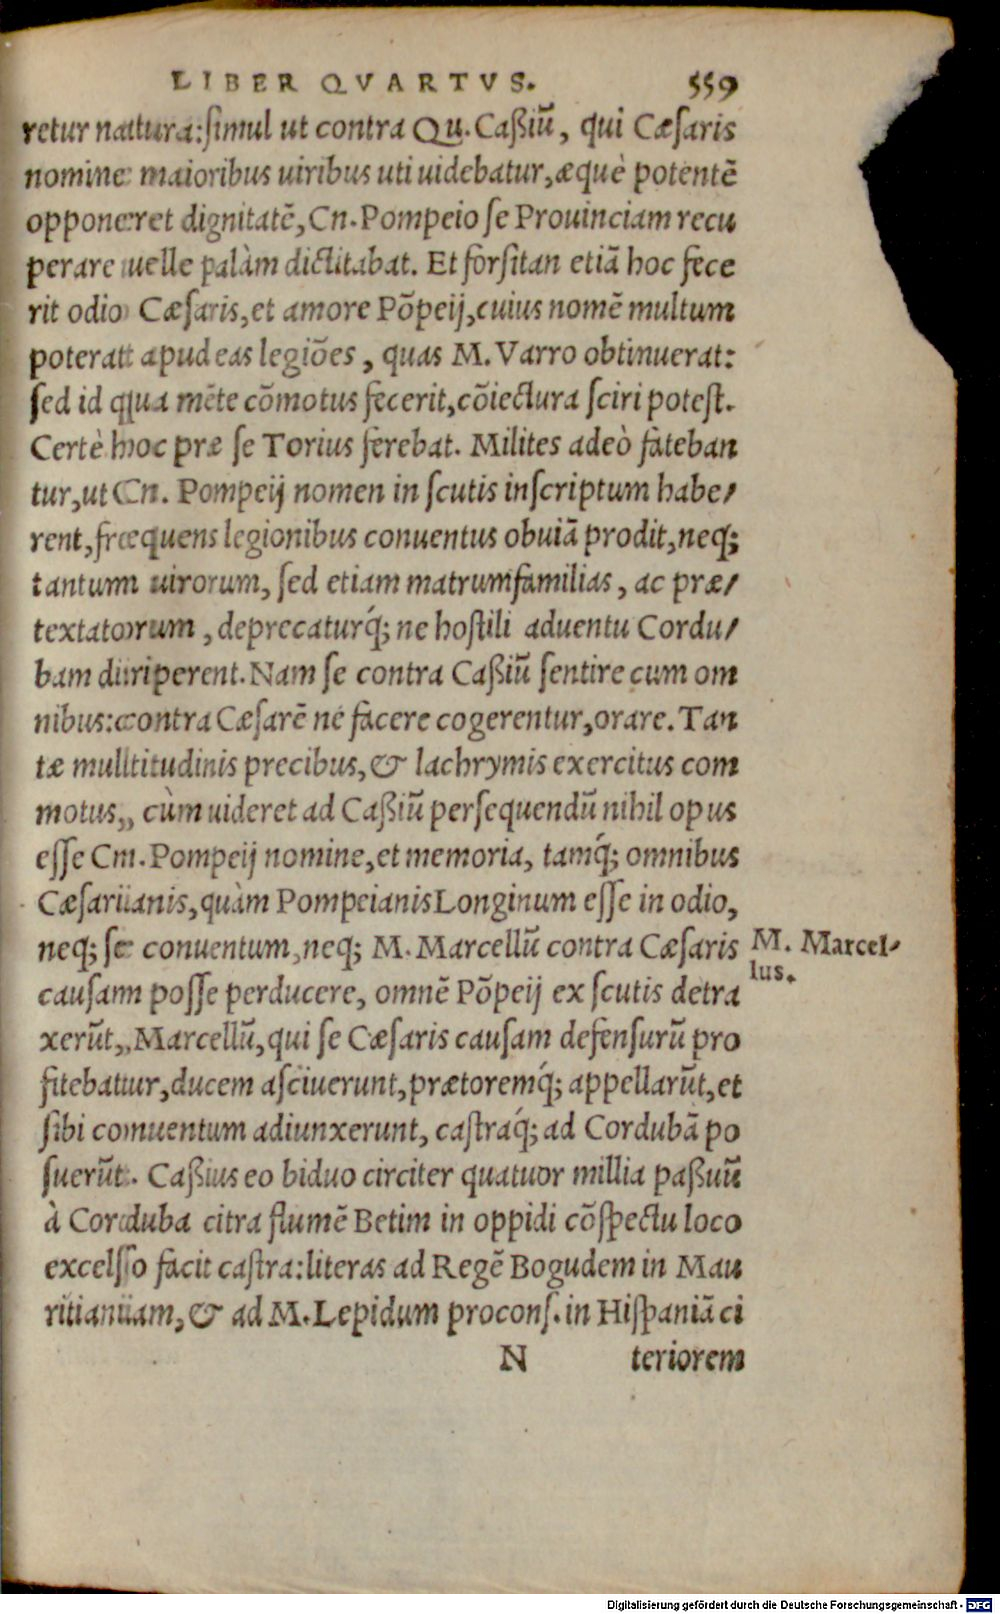 LIBER QVARTVS. 559
retur natura: simul ut contra Qu. Caßiũ, qui Cæsaris
nomine maioribus uiribus uti uidebatur, æquè potentẽ
opponeret dignitatẽ, Cn. Pompeio se Prouinciam recu
perare uelle palàm dictitabat. Et forsitan etiã hoc fece
rit odio Cæsaris, et amore Põpeij, cuius nomẽ multum
poterat apud eas legiões, quas M. Varro obtinuerat:
sed id qua mẽte cõmotus fecerit, cõiectura sciri potest.
Certè hoc præ se Torius ferebat. Milites adeò fateban
tur, ut Cn. Pompeij nomen in scutis inscriptum habe/
rent, frequens legionibus conuentus obuiã prodit, neq;
tantum uirorum, sed etiam matrumfamilias, ac præ/
textatorum, deprecaturq́; ne hostili aduentu Cordu/
bam diriperent. Nam se contra Caßiũ sentire cum om
nibus: contra Cæsarẽ ne facere cogerentur, orare. Tan
tæ multitudinis precibus, & lachrymis exercitus com
motus, cùm uideret ad Caßiũ persequendũ nihil opus
esse Cn. Pompeij nomine, et memoria, tamq́; omnibus
Cæsarianis, quàm Pompeianis Longinum esse in odio,
neq; se conuentum, neq; M. Marcellũ contra Cæsaris
causam posse perducere, omnẽ Põpeij ex scutis detra
xerũt, Marcellũ, qui se Cæsaris causam defensurũ pro
fitebatur, ducem asciuerunt, prætoremq́; appellarũt, et
sibi conuentum adiunxerunt, castraq́; ad Cordubã po
suerũt. Caßius eo biduo circiter quatuor millia paßuũ
à Corduba citra flumẽ Betim in oppidi cõspectu loco
excelso facit castra: literas ad Regẽ Bogudem in Mau
ritaniam, & ad M. Lepidum procons. in Hispaniã ci
N teriorem
M. Marcel-
lus.
Digitalisierung gefördert durch die Deutsche Forschungsgemeinschaft - DFG